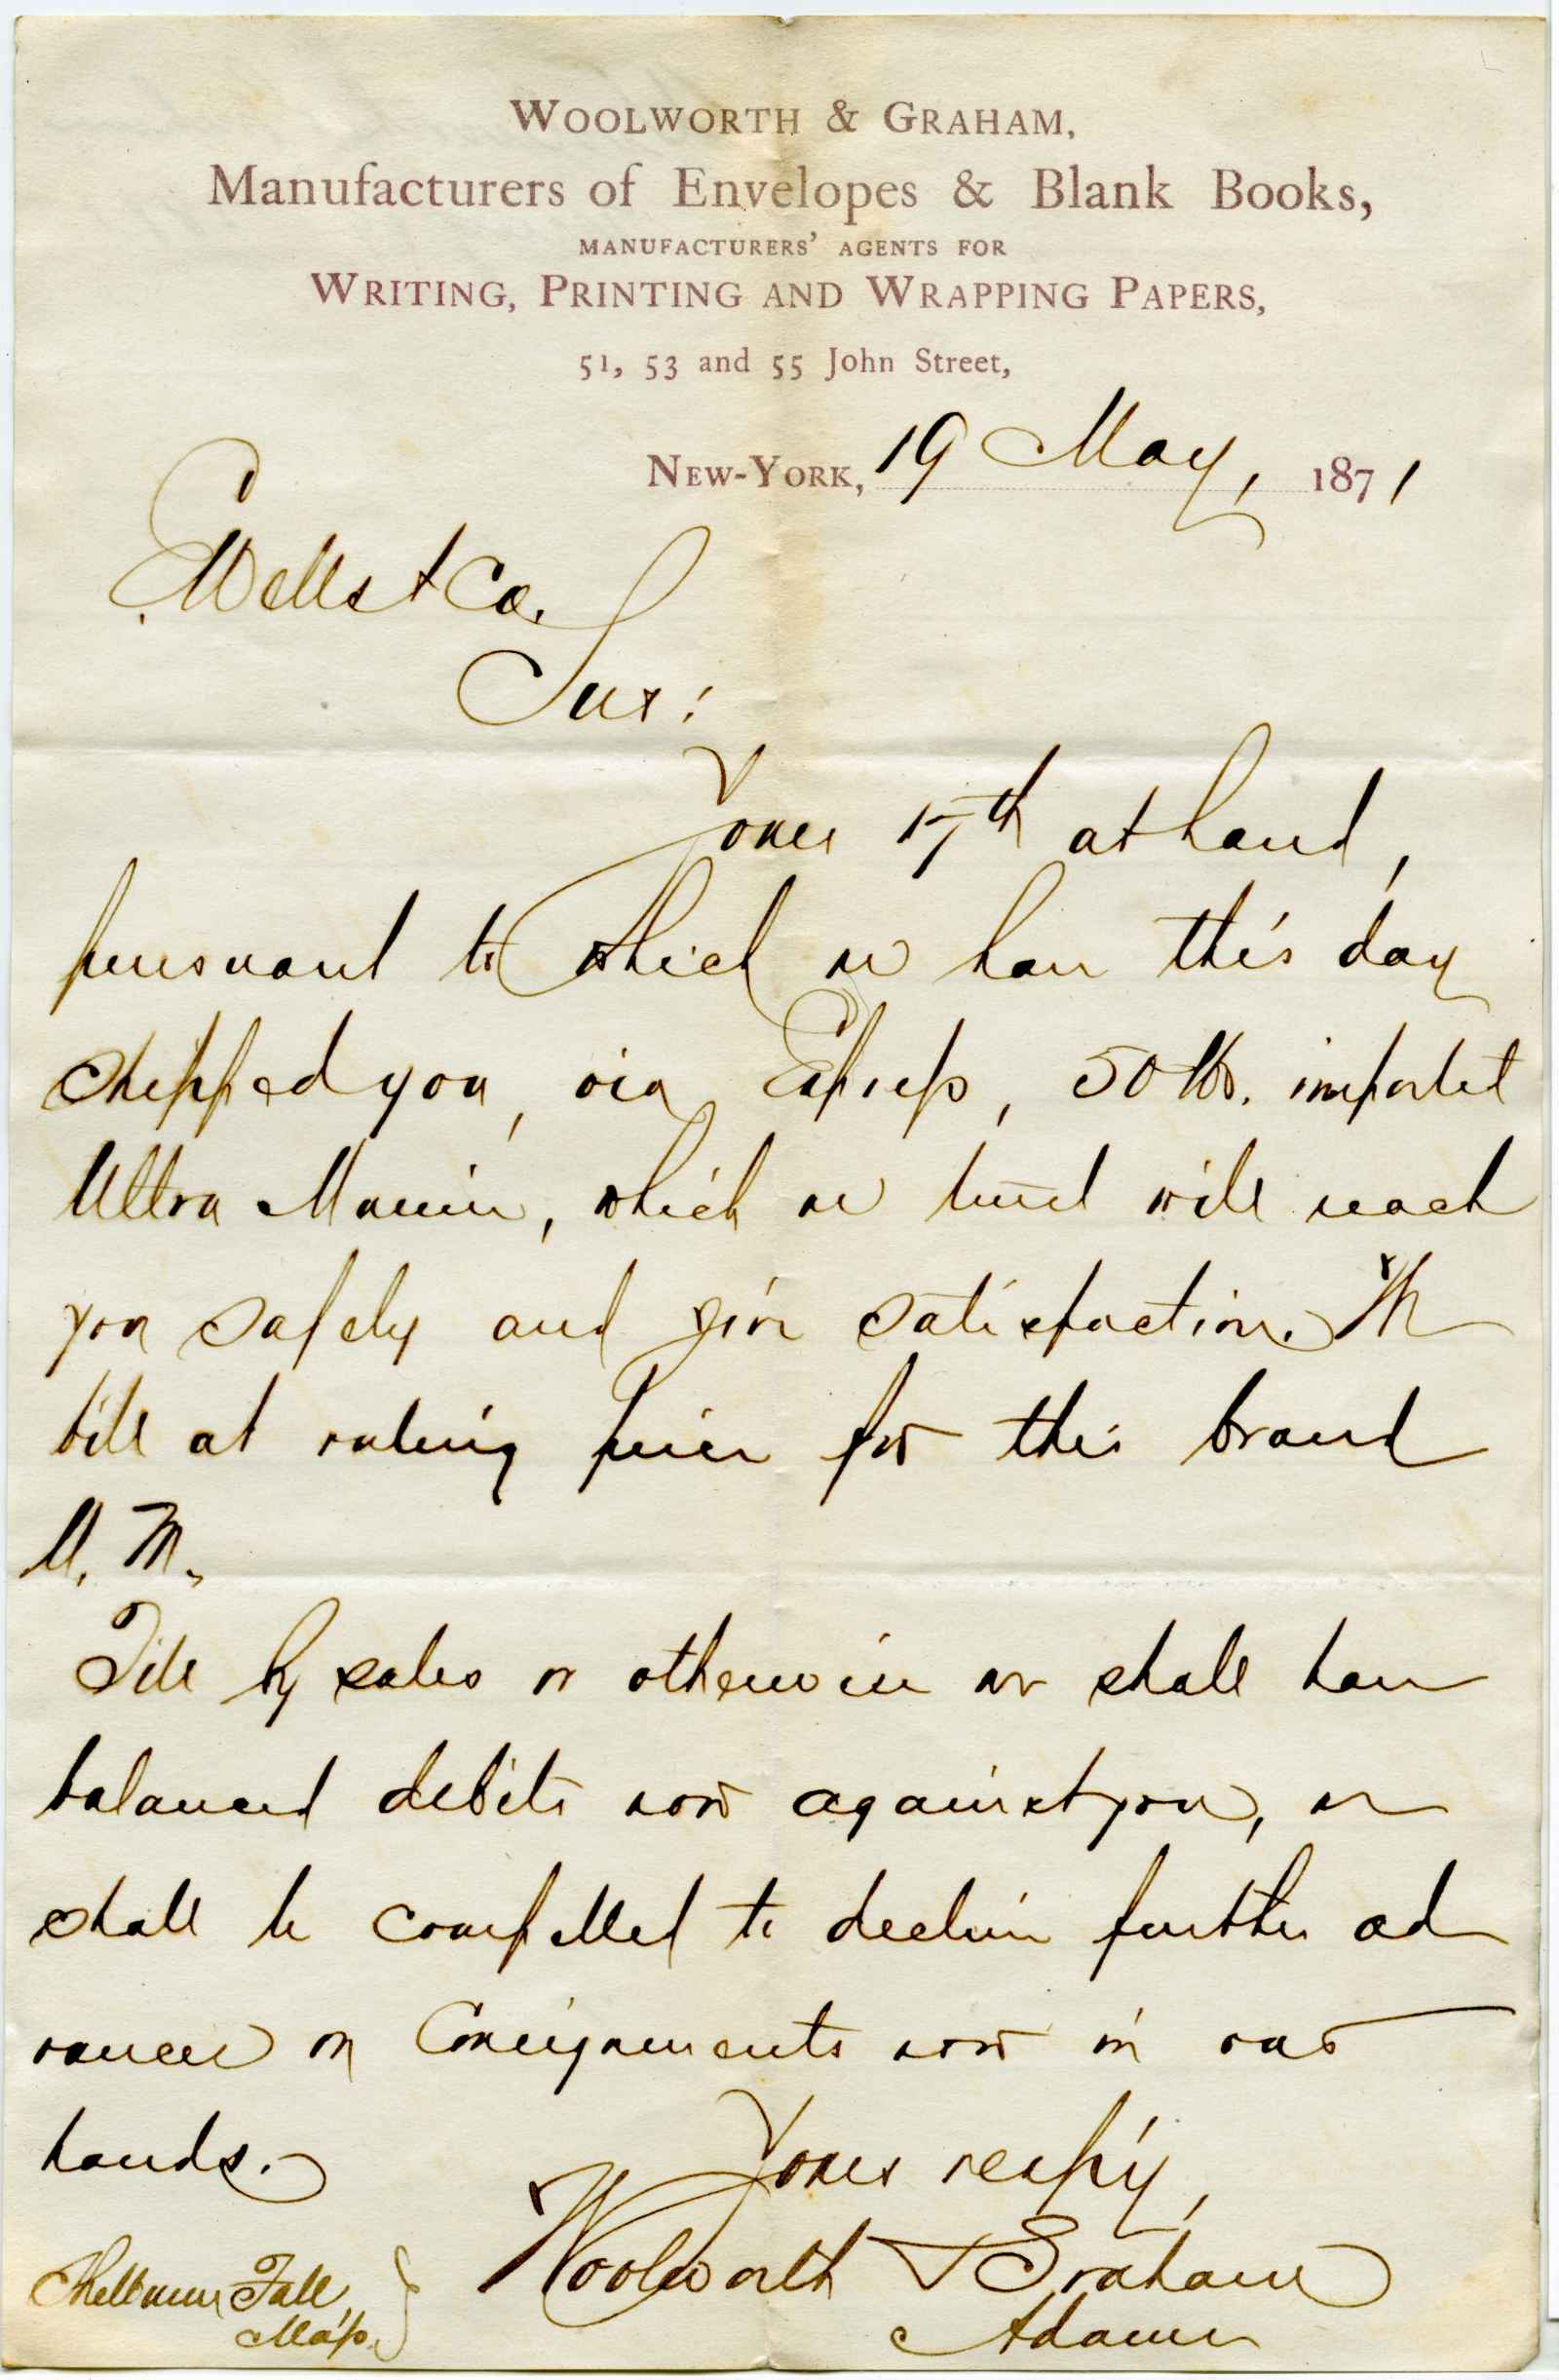 WOOLWORTH & GRAHAM,
Manufacturers of Envelopes & Blank Books,
MANUFACTURERS' AGENTS FOR
WRITING, PRINTING AND WRAPPING PAPERS,
51, 53 and 55 John Street,
NEW-YORK, 19 May, 1871
Wells & Co.
Sirs:
Yours 17th at hand,
pursuant to which we have this day
shipped you, via Express, 50 lbs. imported
Ultra Marine, which we trust will reach
you safely and give satisfaction. We
bill at ruling price for this brand
U. M.
Till by sales or otherwise we shall have
balanced debits now against you, we
shall be compelled to decline further ad
vances on Consignments now in our
hands.
Yours resp'y,
Woolworth & Graham
Adams
Shelburne Falls
Mass.